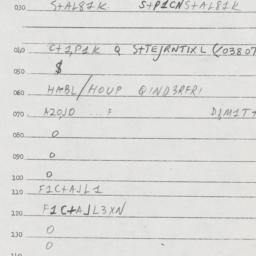 030 S+AL81K S+P1CNS+AL81K
040 C+1P1K Q S+TEJRNTIXL (03807
050 $
060 HMBL/HOUP QIND3RFRI
070 A20JD ... F D1M1T+
080 O
090 O
100 O
110 F1C+AJL1
120 F1C+AJL3XN
130 O
O